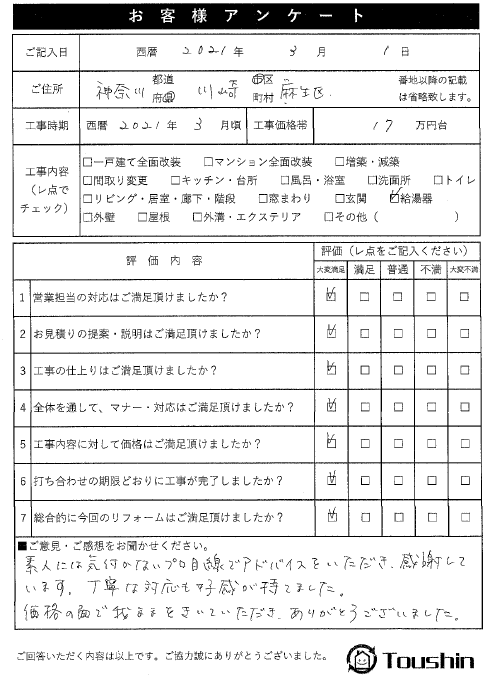 お客様アンケート
ご記入日 西暦 2021年 3月 1日
ご住所 神奈川 都道府県 川崎 市区町村 麻生区 番地以降の記載は省略致します。
工事時期 西暦 2021年 3月頃 工事価格帯 17 万円台
工事内容（レ点でチェック）
□一戸建て全面改装 □マンション全面改装 □増築・減築
□間取り変更 □キッチン・台所 □風呂・浴室 □洗面所 □トイレ
□リビング・居室・廊下・階段 □窓まわり □玄関 ☑給湯器
□外壁 □屋根 □外溝・エクステリア □その他（ ）
評価内容 評価（レ点をご記入ください）
大変満足 満足 普通 不満 大変不満
1 営業担当の対応はご満足頂けましたか？ ☑ □ □ □ □
2 お見積りの提案・説明はご満足頂けましたか？ ☑ □ □ □ □
3 工事の仕上りはご満足頂けましたか？ ☑ □ □ □ □
4 全体を通して、マナー・対応はご満足頂けましたか？ ☑ □ □ □ □
5 工事内容に対して価格はご満足頂けましたか？ ☑ □ □ □ □
6 打ち合わせの期限どおりに工事が完了しましたか？ ☑ □ □ □ □
7 総合的に今回のリフォームはご満足頂けましたか？ ☑ □ □ □ □
■ご意見・ご感想をお聞かせください。
素人には気付かないプロ目線でアドバイスをいただき、感謝して
います。丁寧な対応も好感が持てました。
価格の面で我ままをきいていただき、ありがとうございました。
ご回答いただく内容は以上です。ご協力誠にありがとうございました。
Toushin